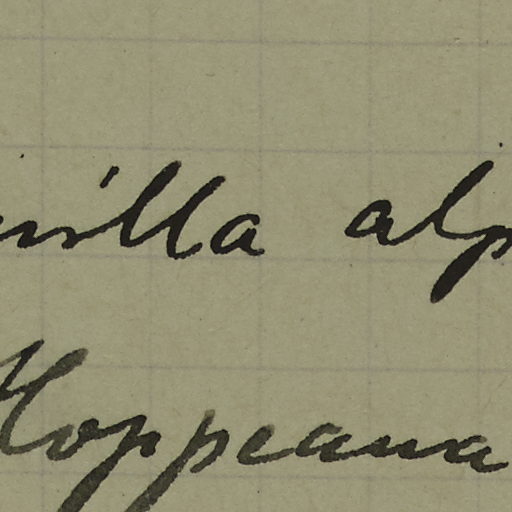 illa alp
Hoppeana